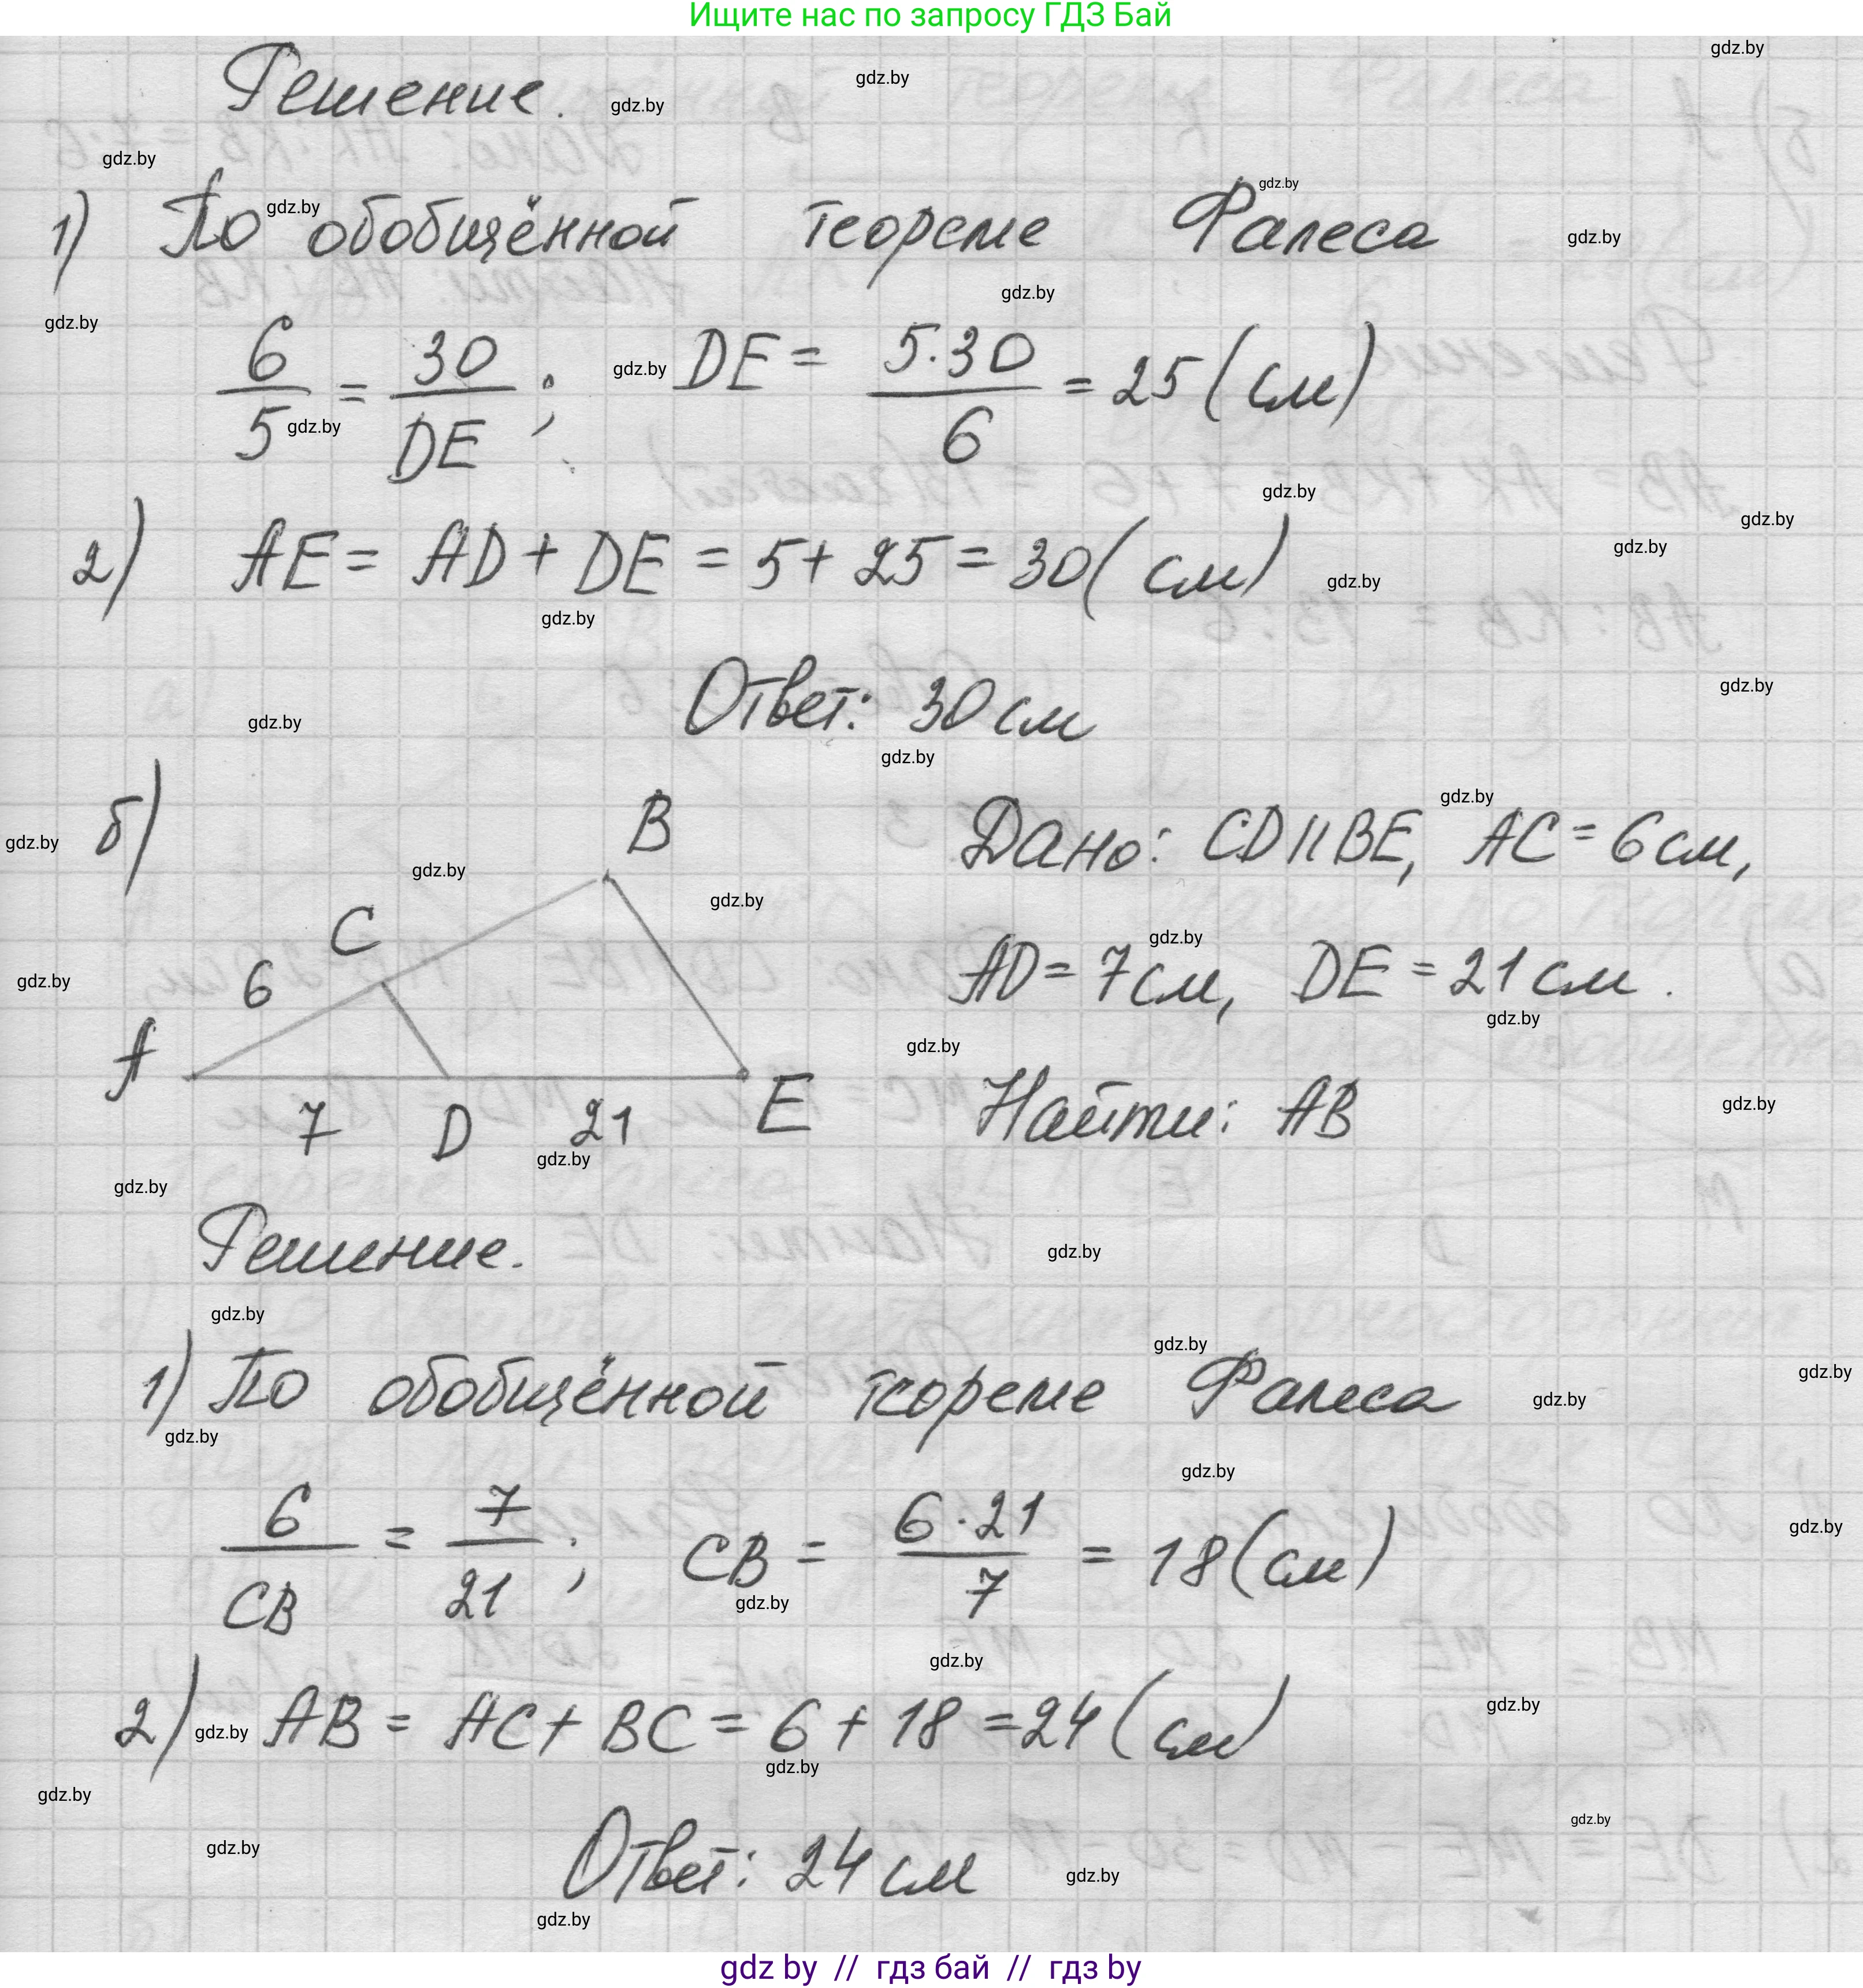 Ищите нас по запросу ГДЗ Бай
Решение.
1) По обобщённой теореме Фалеса
6/5 = 30/DE; DE = 5·30/6 = 25 (см)
2) AE = AD + DE = 5 + 25 = 30 (см)
Ответ: 30 см
б)
B
C
6
A
7
D
21
E
Дано: CD || BE, AC = 6 см,
AD = 7 см, DE = 21 см.
Найти: AB
Решение.
1) По обобщённой теореме Фалеса
6/CB = 7/21; CB = 6·21/7 = 18 (см)
2) AB = AC + BC = 6 + 18 = 24 (см)
Ответ: 24 см
gdz.by
gdz by // гдз бай // гдз by